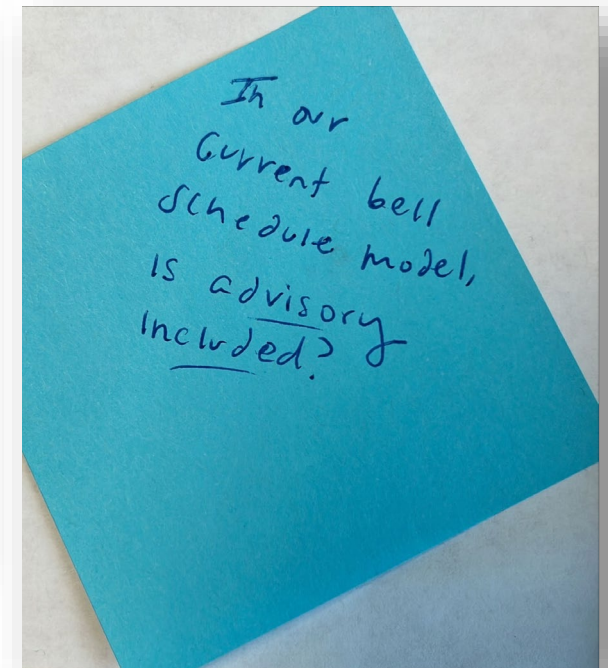 In our
Current bell
Schedule model,
is advisory
included?